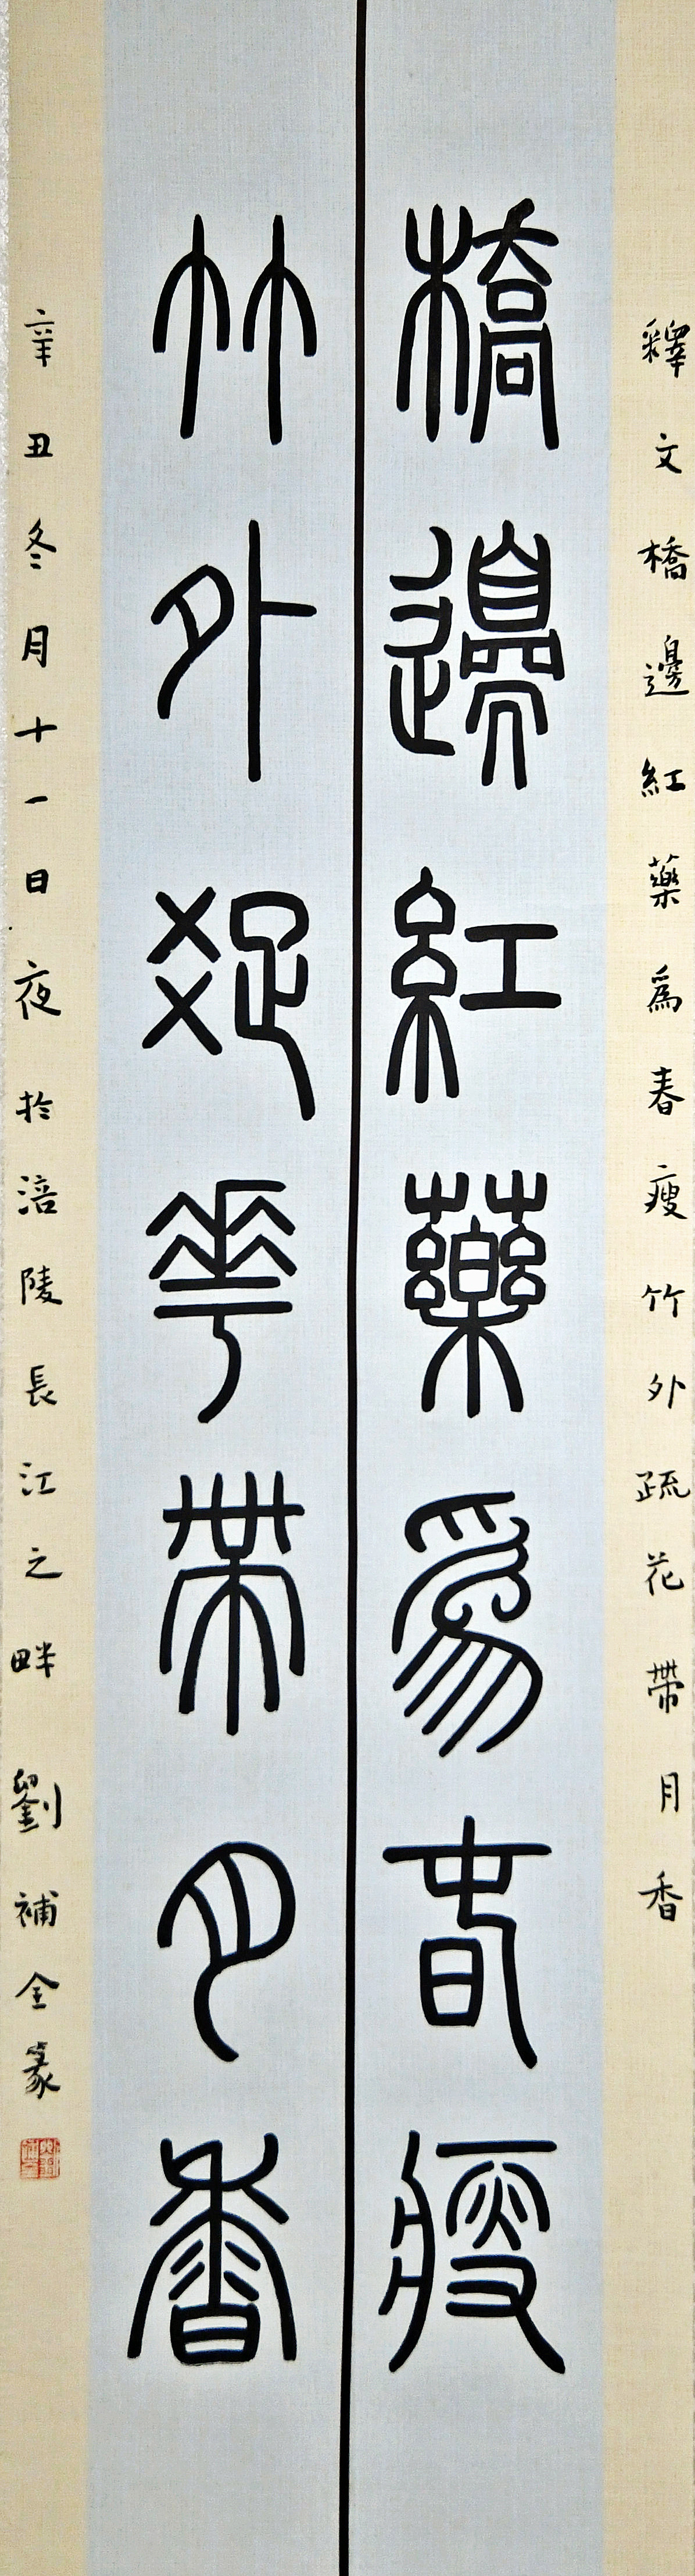 釋文橋邊紅藥為春瘦竹外疏花帶月香
橋邊紅藥為春瘦
竹外疏花帶月香
辛丑冬月十一日夜於涪陵長江之畔劉補全篆